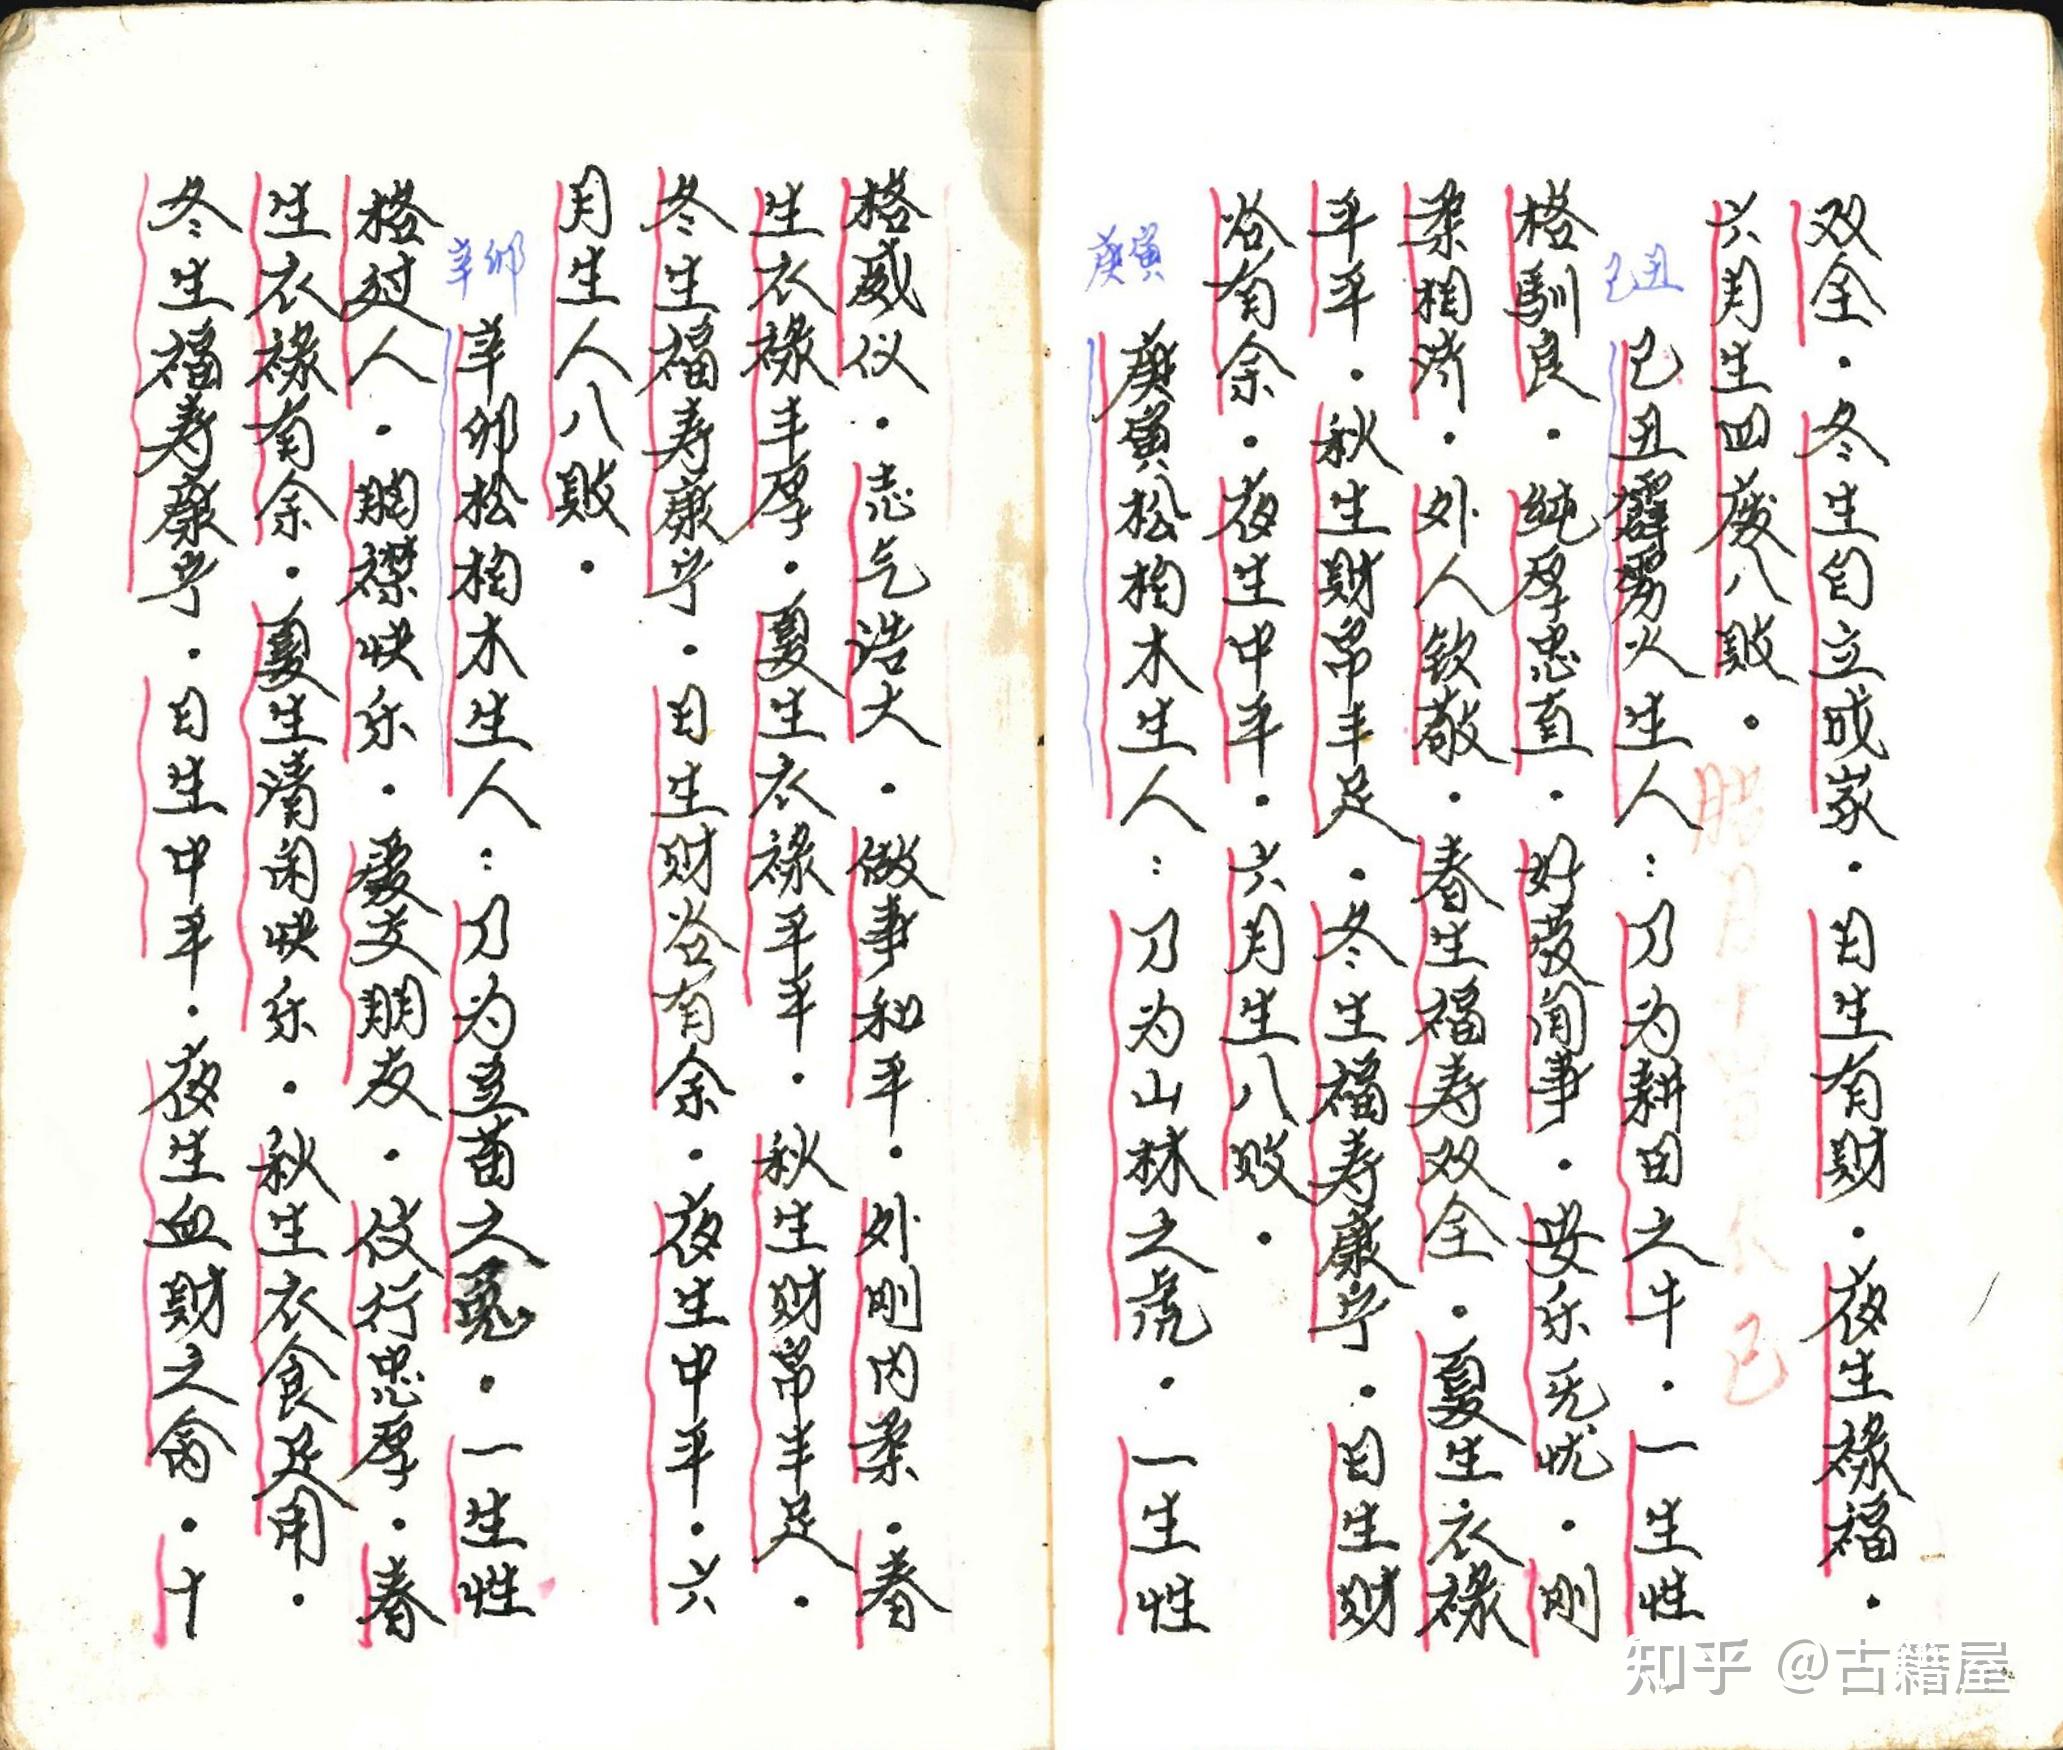 双全．冬生自立成家．日生有财．夜生禄福．
六月生四废八败．
己丑
己丑霹雳火生人：乃为耕田之牛．一生性
格驯良．纯厚忠直．好茇闲事．安乐无忧．刚
柔相济．外人钦敬．春生福寿双全．夏生衣禄
平平．秋生财帛丰足．冬生福寿康宁．日生财
谷有余．夜生中平．六月生八败．
庚寅
庚寅松柏木生人：乃为山林之虎．一生性
格威仪．志气浩大．做事和平．外刚内柔．春
生衣禄丰厚．夏生衣禄平平．秋生财帛丰足．
冬生福寿康宁．日生财谷有余．夜生中平．六
月生人八败．
辛卯
辛卯松柏木生人：乃为豆苗之兔．一生性
格过人．胸襟快乐．爱交朋友．仗行忠厚．春
生衣禄有余．夏生清闲快乐．秋生衣食足用．
冬生福寿康宁．日生中平．夜生血财之命．十
腊月
己
知乎 @古籍屋